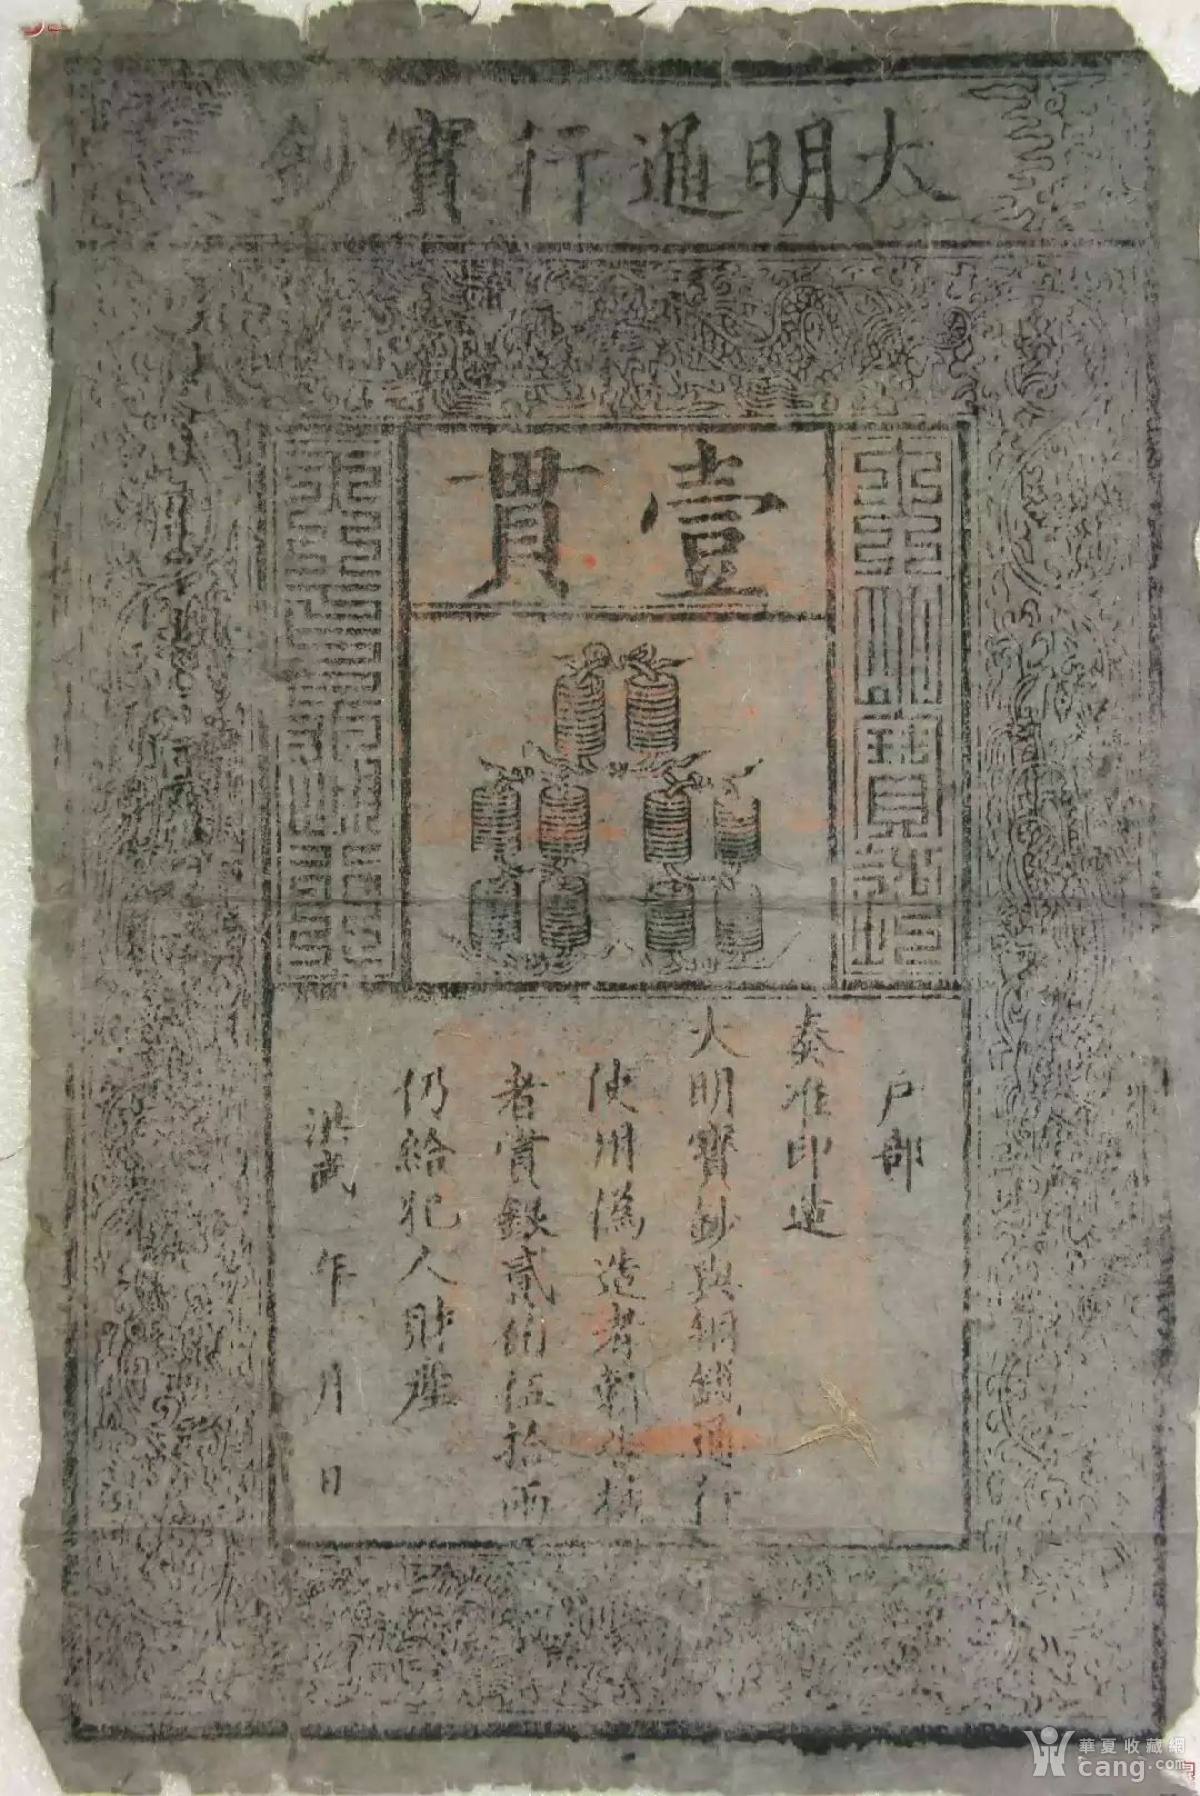 大明通行寶鈔
壹貫
大明寶鈔
天下通行
户部
奏准印造
大明寶鈔與銅錢通行
使用偽造者斬告捕
者賞銀貳伯伍拾兩
仍給犯人財產
洪武 年 月 日
華夏收藏網
cang.com